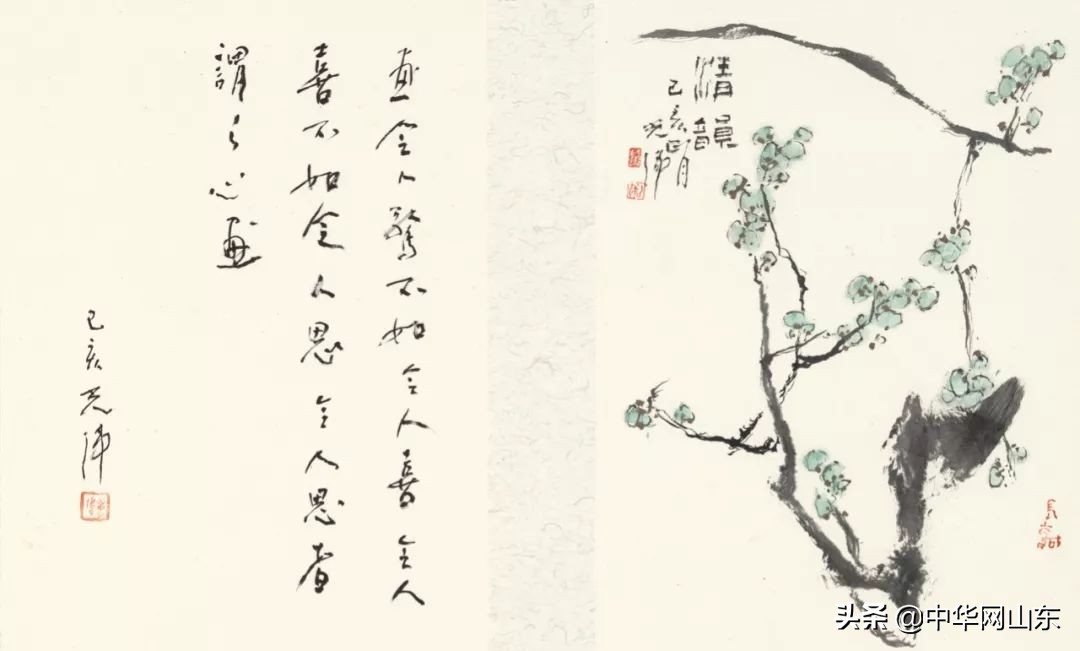 畫令人驚不如令人喜令人
喜不如令人思令人思者
謂之心畫
己亥
清韻
己亥
头条 @中华网山东